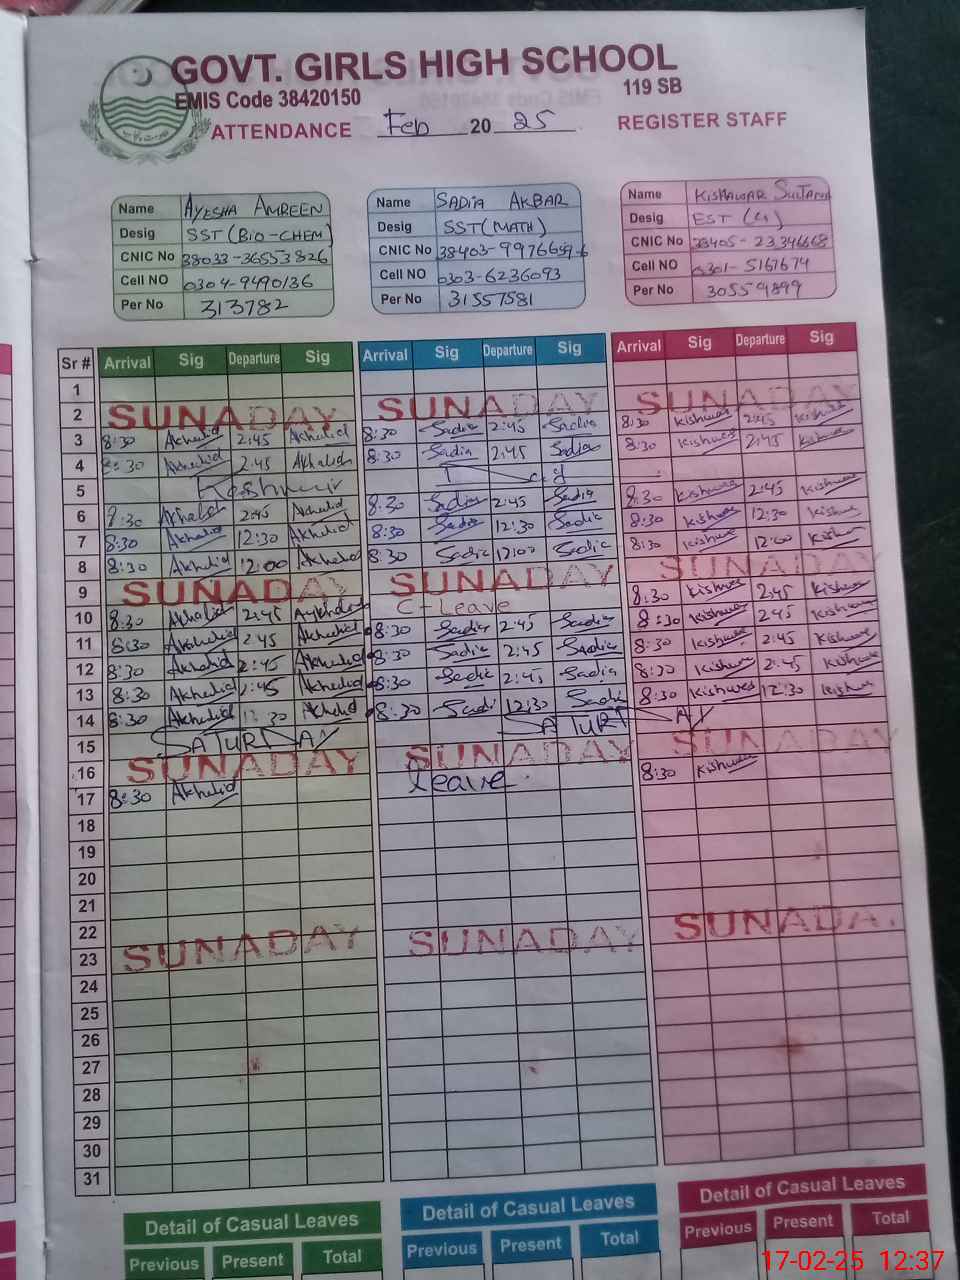 GOVT. GIRLS HIGH SCHOOL
EMIS Code 38420150 119 SB
ATTENDANCE Feb 20 25 REGISTER STAFF
Name AYESHA AMREEN Name SADIA AKBAR Name KISHAWAR SULTANA
Desig SST (BIO-CHEM) Desig SST (MATH) Desig EST (G)
CNIC No 38033-36553826 CNIC No CNIC No
Cell NO 0304-9490136 Cell NO 0303-6236093 Cell NO 0301-5167674
Per No 313782 Per No 31557581 Per No 30559899
Sr # Arrival Sig Departure Sig Arrival Sig Departure Sig Arrival Sig Departure Sig
1
2 SUNADAY SUNADAY SUNADAY
3 8:30 Akhalid 2:45 Akhalid 8:30 Sadia 2:45 Sadia 8:30 Kishwar 2:45 Kishwar
4 8:30 Akhalid 2:45 Akhalid 8:30 Sadia 2:45 Sadia 8:30 Kishwar 2:45 Kishwar
5 Kashmir Day
6 8:30 Akhalid 2:45 Akhalid 8:30 Sadia 2:45 Sadia 8:30 Kishwar 2:45 Kishwar
7 8:30 Akhalid 12:30 Akhalid 8:30 Sadia 12:30 Sadia 8:30 Kishwar 12:30 Kishwar
8 8:30 Akhalid 12:00 Akhalid 8:30 Sadia 12:00 Sadia 8:30 Kishwar 12:00 Kishwar
9 SUNADAY SUNADAY SUNADAY
10 8:30 Akhalid 2:45 Akhalid C-Leave 8:30 Kishwar 2:45 Kishwar
11 8:30 Akhalid 2:45 Akhalid 8:30 Sadia 2:45 Sadia 8:30 Kishwar 2:45 Kishwar
12 8:30 Akhalid 2:45 Akhalid 8:30 Sadia 2:45 Sadia 8:30 Kishwar 2:45 Kishwar
13 8:30 Akhalid 2:45 Akhalid 8:30 Sadia 2:45 Sadia 8:30 Kishwar 2:45 Kishwar
14 8:30 Akhalid 12:30 Akhalid 8:30 Sadia 12:30 Sadia 8:30 Kishwar 12:30 Kishwar
15 SATURDAY SATURDAY
16 SUNADAY SUNADAY SUNADAY
17 8:30 Akhalid leave 8:30 Kishwar
18
19
20
21
22
23 SUNADAY SUNADAY SUNADAY
24
25
26
27
28
29
30
31
Detail of Casual Leaves Detail of Casual Leaves Detail of Casual Leaves
Previous Present Total Previous Present Total Previous Present Total
17-02-25 12:37